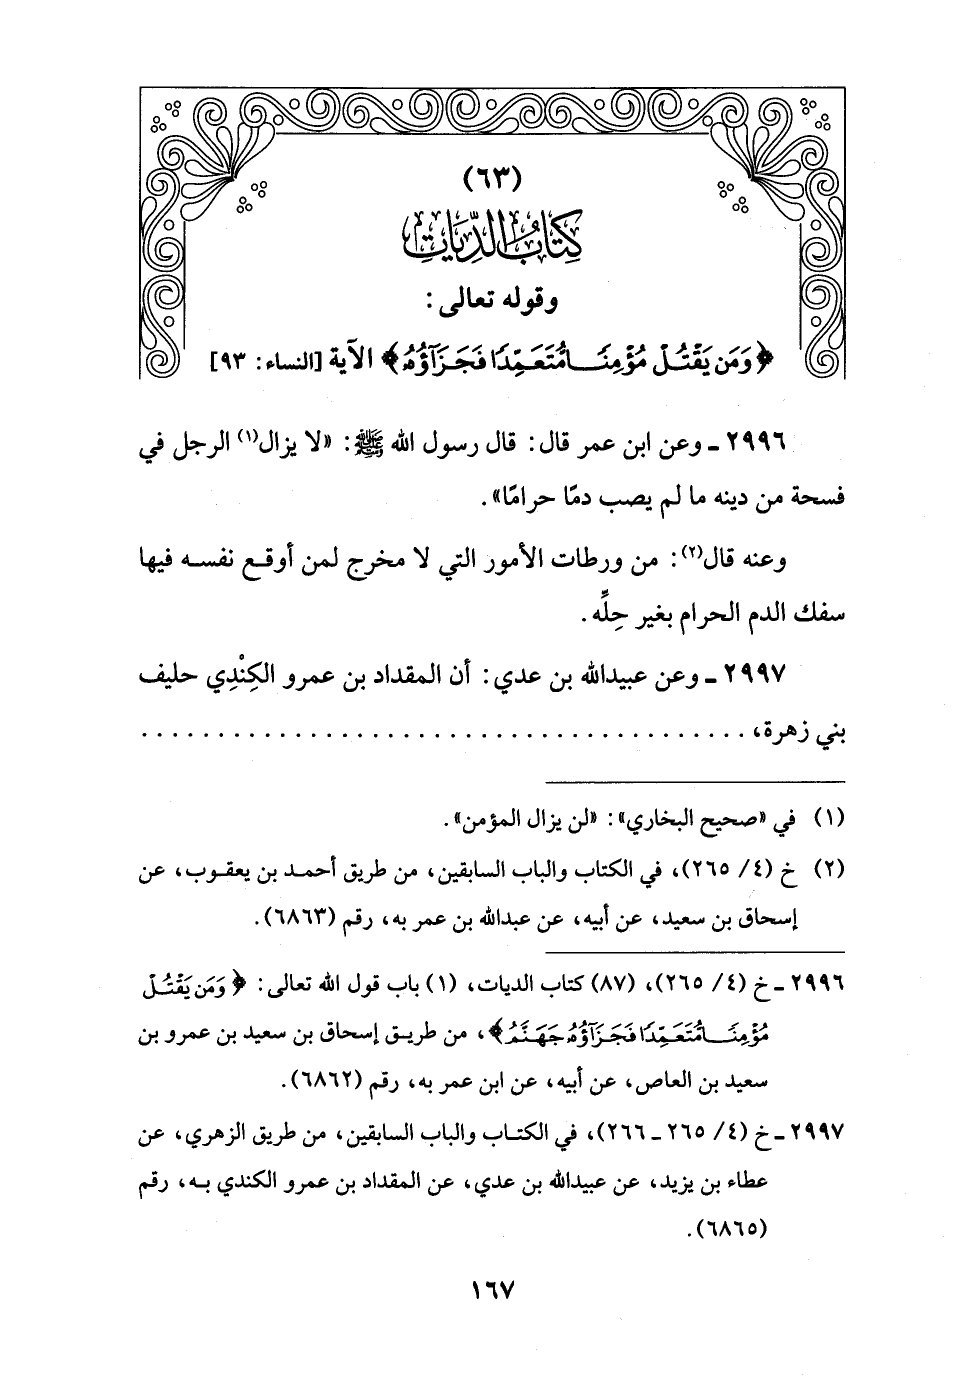 (٦٣)
كِتَابُ الدِّيَاتِ
وقوله تعالى:
﴿وَمَن يَقْتُلْ مُؤْمِنًا مُّتَعَمِّدًا فَجَزَآؤُهُ﴾ الآية [النساء: ٩٣]
٢٩٩٦ ـ وعن ابن عمر قال: قال رسول الله ﷺ: «لا يزال(١) الرجل في
فسحة من دينه ما لم يصب دمًا حرامًا».
وعنه قال(٢): من ورطات الأمور التي لا مخرج لمن أوقع نفسه فيها
سفك الدم الحرام بغير حِلِّه.
٢٩٩٧ ـ وعن عبيدالله بن عدي: أن المقداد بن عمرو الكِنْدِي حليف
بني زهرة، . . . . . . . . . . . . . . . . . . . . . . . . . . . . . . . . . . . . . . .
(١) في «صحيح البخاري»: «لن يزال المؤمن».
(٢) خ (٤/ ٢٦٥)، في الكتاب والباب السابقين، من طريق أحمد بن يعقوب، عن
إسحاق بن سعيد، عن أبيه، عن عبدالله بن عمر به، رقم (٦٨٦٣).
٢٩٩٦ ـ خ (٤/ ٢٦٥)، (٨٧) كتاب الديات، (١) باب قول الله تعالى: ﴿وَمَن يَقْتُلْ
مُؤْمِنًا مُّتَعَمِّدًا فَجَزَآؤُهُ جَهَنَّمُ﴾، من طريق إسحاق بن سعيد بن عمرو بن
سعيد بن العاص، عن أبيه، عن ابن عمر به، رقم (٦٨٦٢).
٢٩٩٧ ـ خ (٤/ ٢٦٥ ـ ٢٦٦)، في الكتاب والباب السابقين، من طريق الزهري، عن
عطاء بن يزيد، عن عبيدالله بن عدي، عن المقداد بن عمرو الكندي به، رقم
(٦٨٦٥).
١٦٧